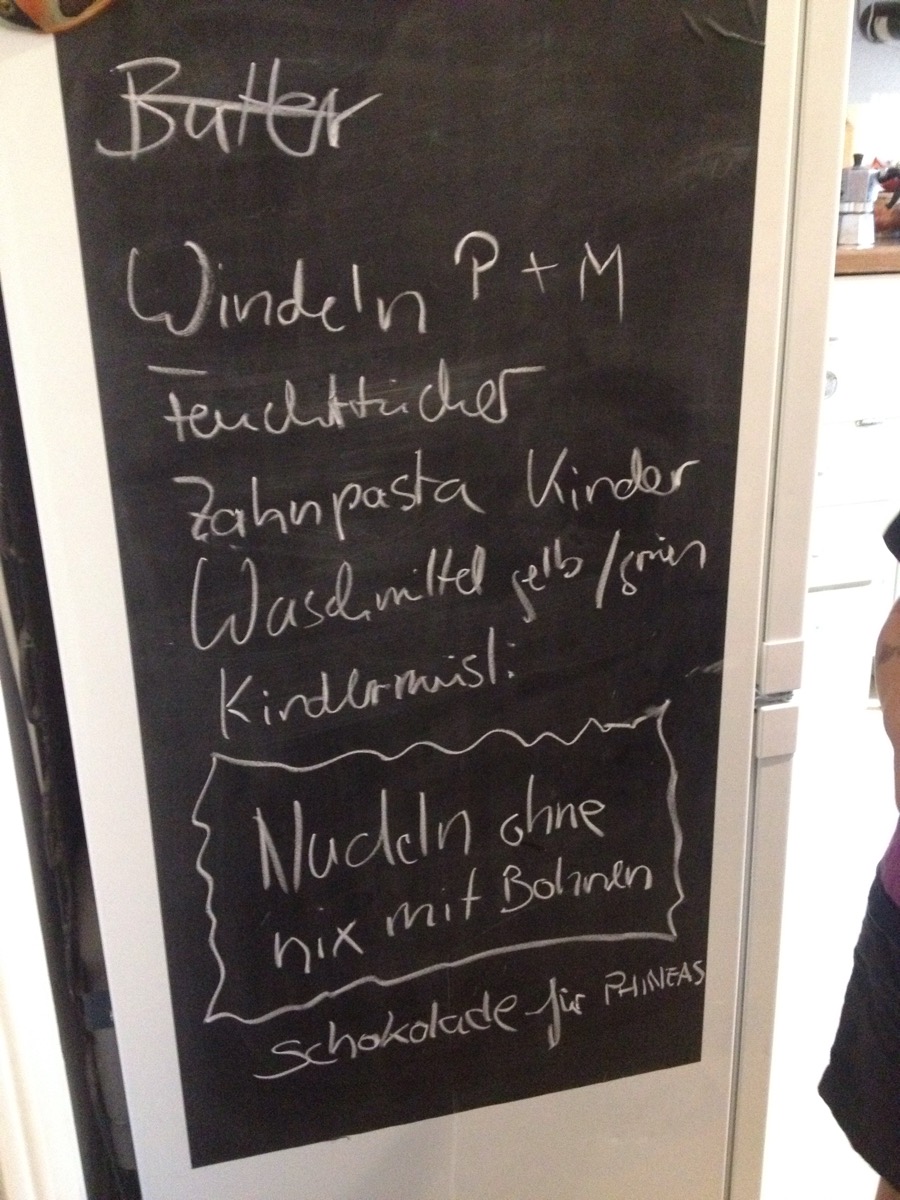 Butter
Windeln P + M
Feuchttücher
Zahnpasta Kinder
Waschmittel gelb / grün
Kindermüsli
Nudeln ohne
nix mit Bohnen
Schokolade für PHINEAS